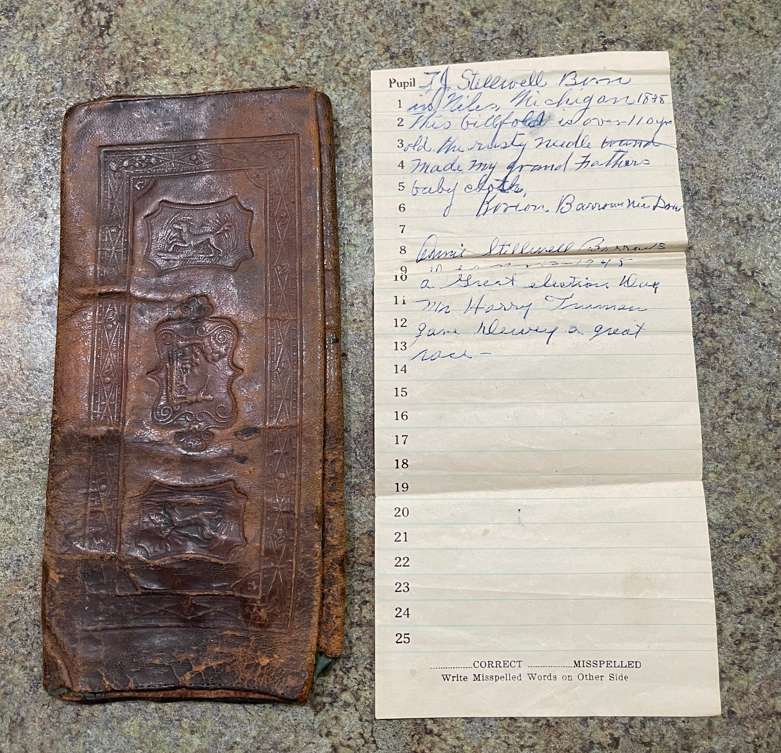 Pupil T.J. Stellwell Born
1 in Niles, Michigan 1838
2 This billfold is over 110 yrs
3 old the rusty needle
4 Made my grand Fathers
5 baby cloths,
6 Barrows
7
8 Annie Stillwell Barrows
9
10 a Great election Day
11 Mr Harry Truman
12 gave Dewey a great
13 race —
14
15
16
17
18
19
20
21
22
23
24
25
CORRECT MISSPELLED
Write Misspelled Words on Other Side